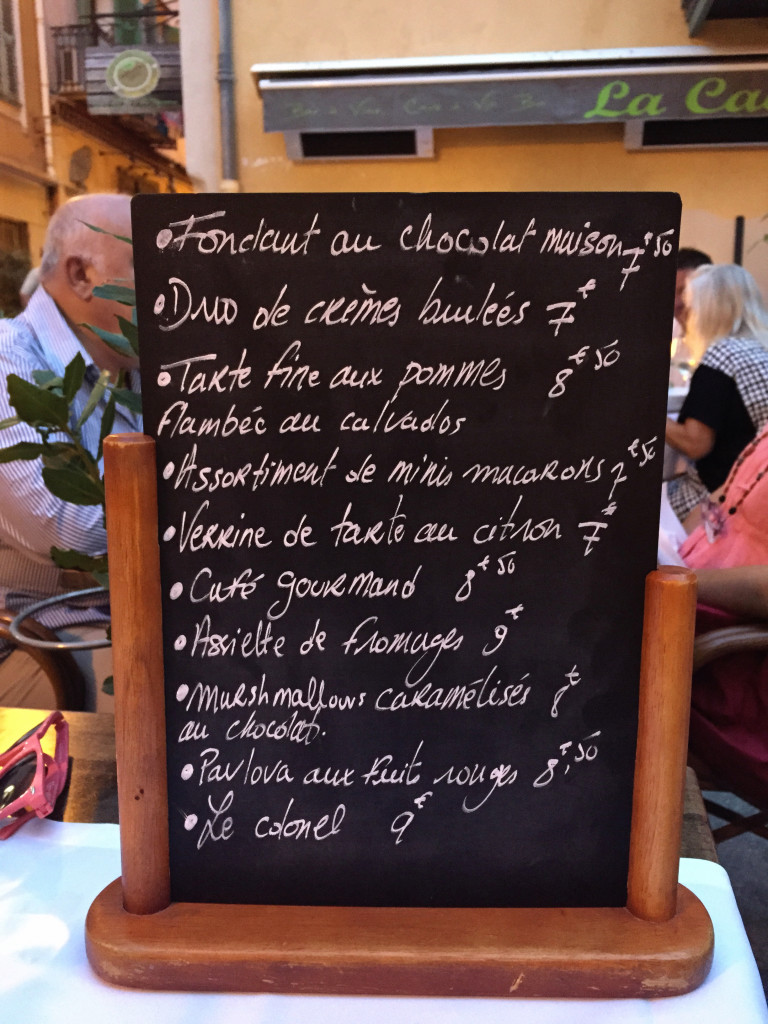 La Ca
• Fondant au chocolat maison 7€50
• Duo de crèmes brulées 7€
• Tarte fine aux pommes 8€50
flambée au calvados
• Assortiment de minis macarons 7€50
• Verrine de tarte au citron 7€
• Café gourmand 8€50
• Assiette de fromages 9€
• Marshmallows caramélisés 8€
au chocolat.
• Pavlova aux fruits rouges 8€,50
• Le colonel 9€